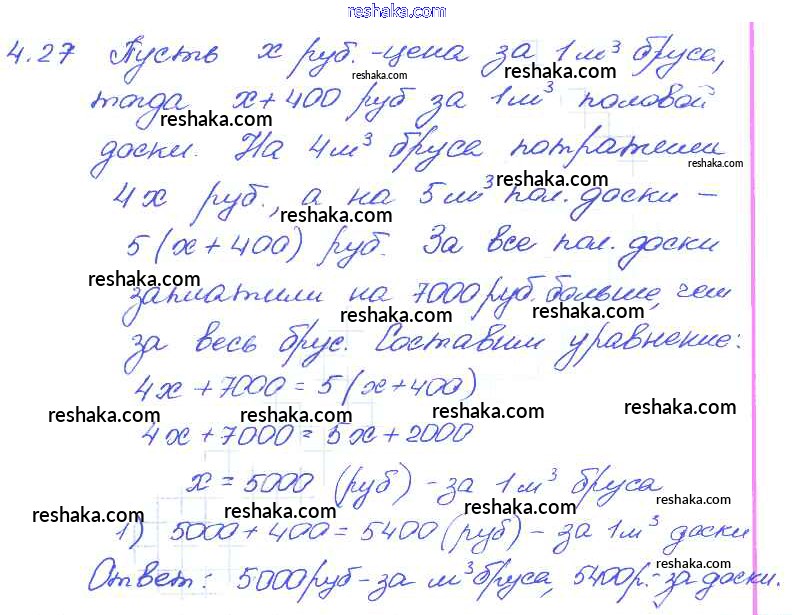 reshaka.com
4.27 Пусть x руб. - цена за 1 м³ бруса,
reshaka.com reshaka.com
тогда x+400 руб за 1 м³ половой
reshaka.com reshaka.com
доски. На 4 м³ бруса потратили
reshaka.com reshaka.com
4x руб., а на 5 м³ пол. доски -
reshaka.com reshaka.com
5(x+400) руб. За все пол. доски
reshaka.com
заплатили на 7000 руб. больше, чем
reshaka.com reshaka.com
за весь брус. Составим уравнение:
4x+7000=5(x+400)
reshaka.com reshaka.com reshaka.com reshaka.com
4x+7000=5x+2000
x=5000 (руб) - за 1 м³ бруса
reshaka.com reshaka.com reshaka.com reshaka.com
1) 5000+400=5400 (руб) - за 1 м³ доски
reshaka.com reshaka.com
Ответ: 5000 руб - за м³ бруса, 5400 р. - за доски.
reshaka.com reshaka.com